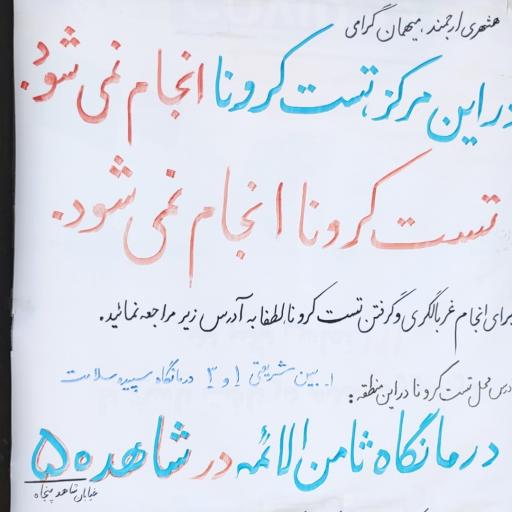 همشهری ارجمند، میهمان گرامی
در این مرکز، تست کرونا انجام نمی‌شود.
تست کرونا انجام نمی‌شود.
برای انجام غربالگری و گرفتن تست کرونا لطفا به آدرس زیر مراجعه نمائید.
آدرس محل تست کرونا در این منطقه:
۱- بین شریعتی ۱ و ۳ درمانگاه سپیده سلامت
درمانگاه ثامن الائمه در شاهد ۵۰
خیابان شاهد پنجاه